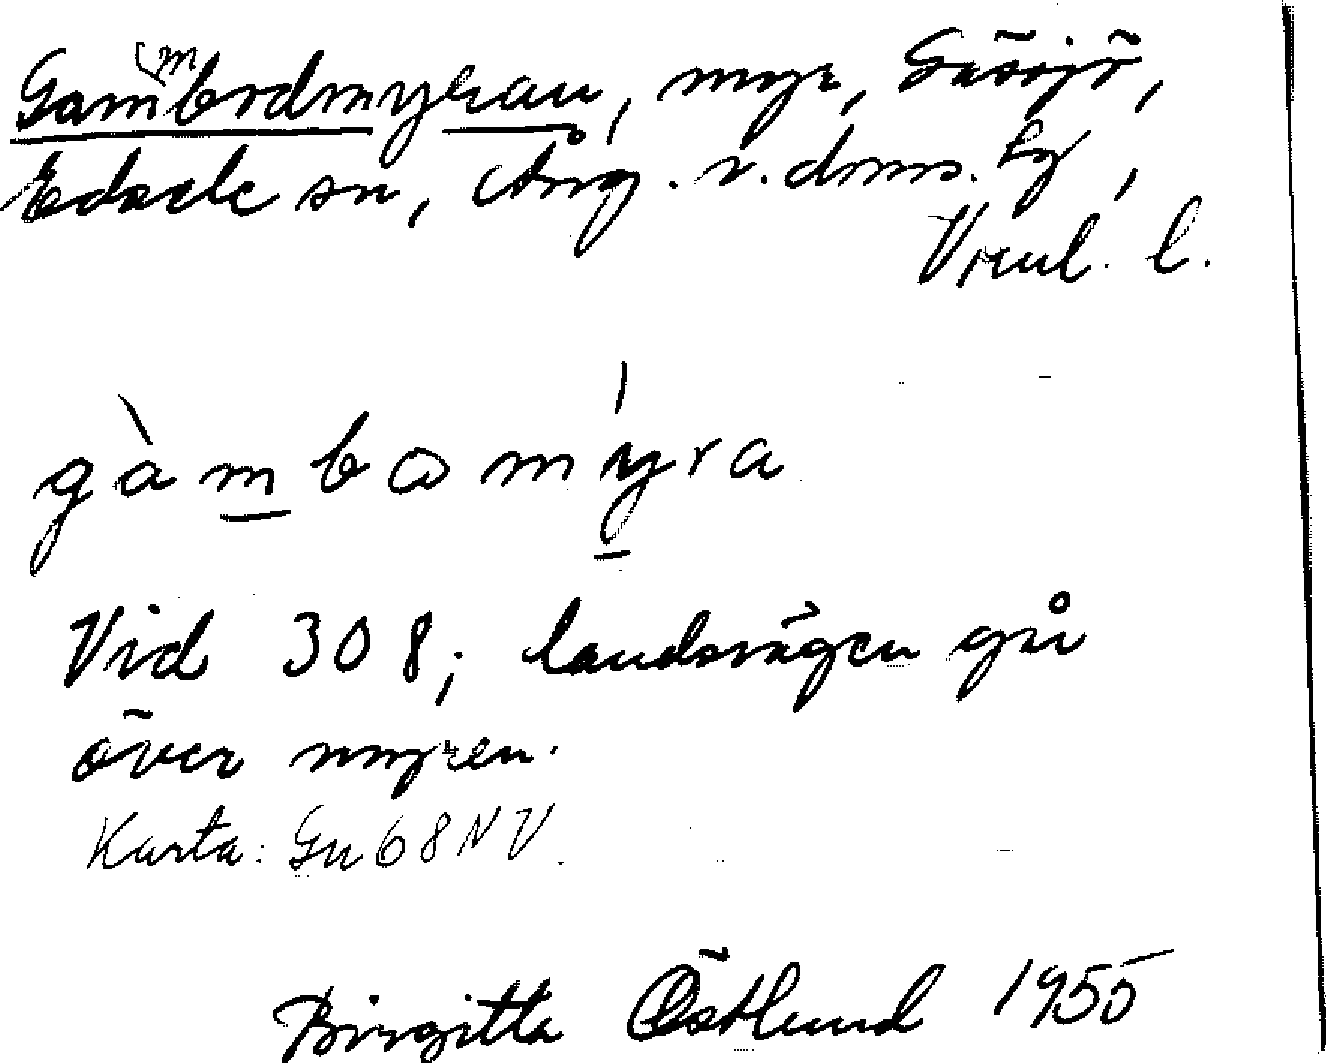 Gam(mbodmyran, myr, Gåsjö,
Edsele sn, Ång. v. dms. hd,
Vnml. l.
gàmbomýra
Vid 308; landsvägen går
över myren.
Karta: Gn 68 NV.
Birgitta Östlund 1955